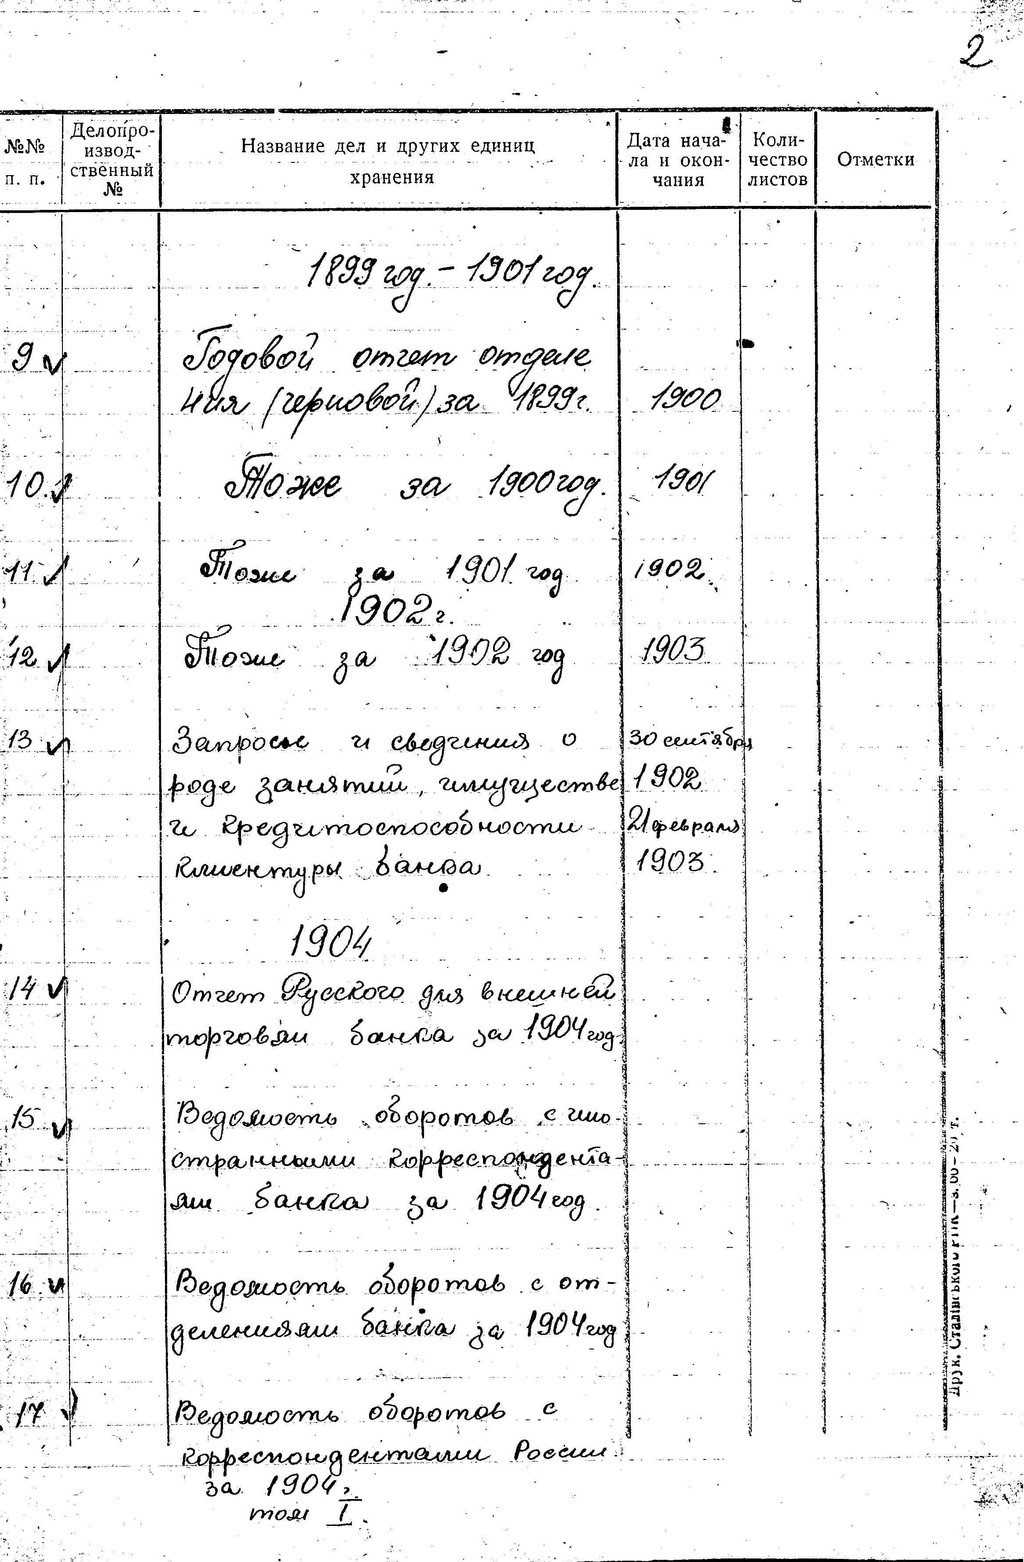 2
№№ п. п.
Делопро-
извод-
ственный
№
Название дел и других единиц
хранения
Дата нача-
ла и окон-
чания
Коли-
чество
листов
Отметки
1899 год. - 1901 год.
9 ✓ Годовой отчет отделе
ния (черновой) за 1899г. 1900
10. ✓ Тоже за 1900 год. 1901
11. ✓ Тоже за 1901 год 1902.
1902 г.
12 ✓ Тоже за 1902 год 1903
13 ✓ Запросы и сведения о 30 сентября
роде занятий, имуществе 1902
и кредитоспособности 21 февраля
клиентуры банка 1903.
1904
14 ✓ Отчет Русского для внешней
торговли банка за 1904 год.
15 ✓ Ведомость оборотов с ино-
странными корреспондента-
ми банка за 1904 год.
16 ✓ Ведомость оборотов с от-
делениями банка за 1904 год
17 ✓ Ведомость оборотов с
корреспондентами России
за 1904 г.
том I.
Друк. Сталінського